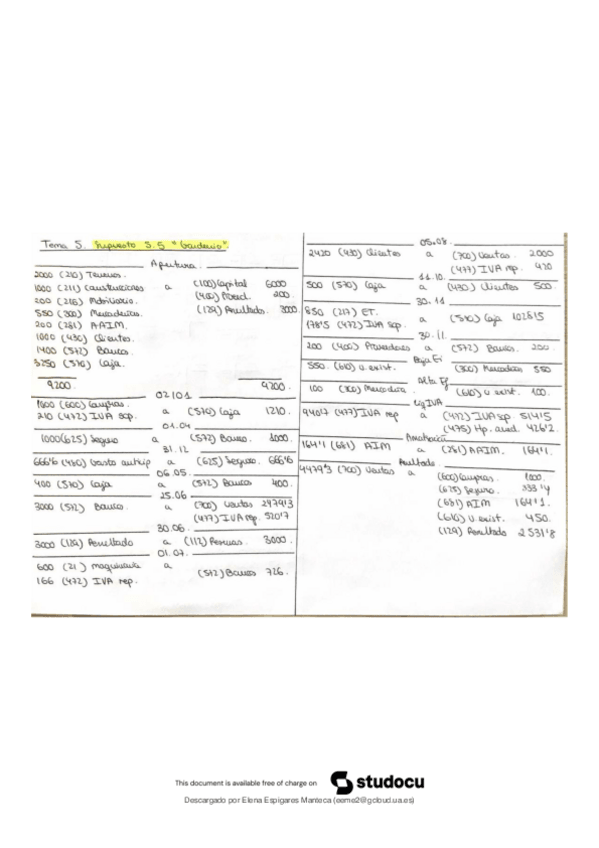 Tema 5. Supuesto 5.5 "Gaudencio".
Apertura.
2000 (210) Terrenos.
1000 (211) Construcciones a (100) Capital 6000
200 (216) Mobiliario. (400) Proved. 200.
550 (300) Mercaderías. (129) Resultado. 3000.
200 (281) AAIM.
1000 (430) Clientes.
1400 (572) Bancos.
3250 (570) Caja.
9200. 9200.
02/01
1000 (600) Compras.
210 (472) IVA sop. a (570) Caja 1210.
01.04
1000 (625) Seguro a (572) Banco. 1000.
31.12
666'6 (480) Gasto anticip a (625) Seguro. 666'6
06.05
400 (570) Caja a (572) Bancos 400.
25.06
3000 (572) Bancos a (700) Ventas 2479'3
(477) IVA rep. 520'7
30.06
3000 (129) Resultado a (112) Reservas 3000.
01.07
600 (21 ) maquinaria a
(572) Bancos 726.
166 (472) IVA rep.
05.08.
2420 (430) Clientes a (700) Ventas. 2000
(477) IVA rep. 420
11.10.
500 (570) Caja a (430) Clientes 500.
30.11
850 (217) ET.
178'5 (472) IVA sop. a (570) Caja 1028'5
30.11.
200 (400) Proveedores a (572) Bancos. 200.
Baja Ei
550. (610) v. exist. a (300) Mercaderías 550
Alta Ef
100 (300) Mercadería. a (610) v. exist. 100.
Liq IVA
940'7 (477) IVA rep a (472) IVA sop 514'5
(475) Hp. acred. 426'2.
Amortización
164'1 (681) AIM a (281) AAIM. 164'1.
Resultado.
4479'3 (700) Ventas a (600) Compras 1000.
(625) Seguro. 333'4
(681) AIM 164'1.
(610) v. exist. 450.
(129) Resultado 2531'8
This document is available free of charge on studocu
Descargado por Elena Espigares Manteca (eeme2@gcloud.ua.es)